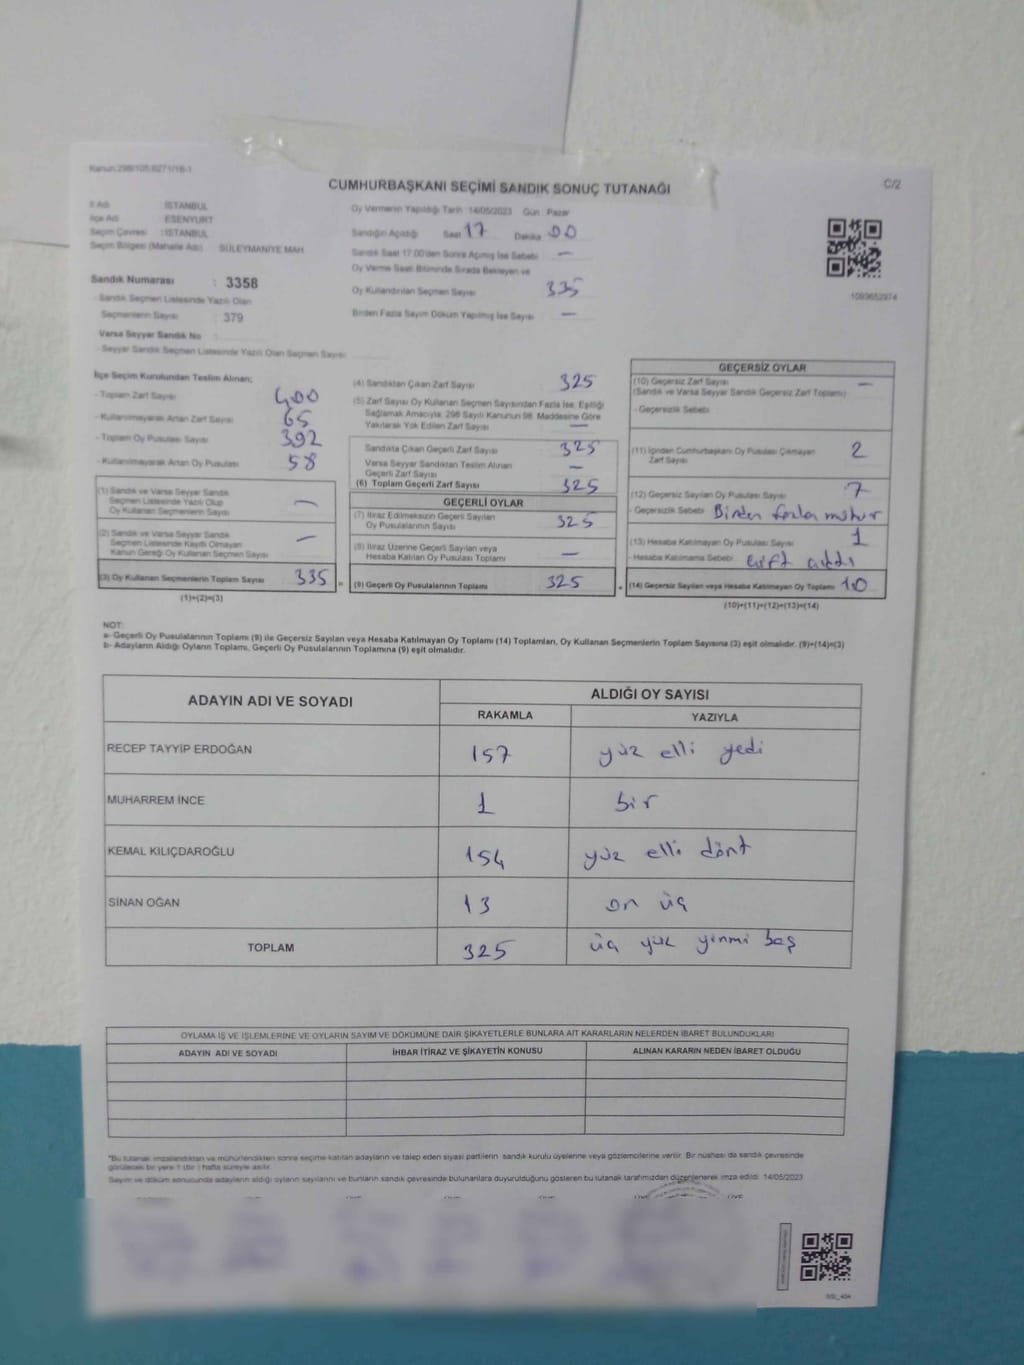 Kanun:298/105,6271/18-1
CUMHURBAŞKANI SEÇİMİ SANDIK SONUÇ TUTANAĞI
C/2
İl Adı : İSTANBUL
İlçe Adı : ESENYURT
Seçim Çevresi : İSTANBUL
Seçim Bölgesi (Mahalle Adı) : SÜLEYMANİYE MAH.
Sandık Numarası : 3358
- Sandık Seçmen Listesinde Yazılı Olan
Seçmenlerin Sayısı : 379
Varsa Seyyar Sandık No :
- Seyyar Sandık Seçmen Listesinde Yazılı Olan Seçmen Sayısı :
Oy Vermenin Yapıldığı Tarih : 14/05/2023 Gün : Pazar
Sandığın Açıldığı Saat 17 Dakika 00
Sandık Saat 17.00'den Sonra Açılmış İse Sebebi —
Oy Verme Saati Bitiminde Sırada Bekleyen ve
Oy Kullandırılan Seçmen Sayısı 335
Birden Fazla Sayım Döküm Yapılmış İse Sayısı —
1093652974
İlçe Seçim Kurulundan Teslim Alınan;
- Toplam Zarf Sayısı 400
- Kullanılmayarak Artan Zarf Sayısı 65
- Toplam Oy Pusulası Sayısı 392
- Kullanılmayarak Artan Oy Pusulası 58
(1) Sandık ve Varsa Seyyar Sandık
Seçmen Listesinde Yazılı Olup
Oy Kullanan Seçmenlerin Sayısı —
(2) Sandık ve Varsa Seyyar Sandık
Seçmen Listesinde Kayıtlı Olmayan
Kanun Gereği Oy Kullanan Seçmen Sayısı —
(3) Oy Kullanan Seçmenlerin Toplam Sayısı 335 =
(1)+(2)=(3)
(4) Sandıktan Çıkan Zarf Sayısı 325
(5) Zarf Sayısı Oy Kullanan Seçmen Sayısından Fazla İse, Eşitliği
Sağlamak Amacıyla; 298 Sayılı Kanunun 98. Maddesine Göre
Yakılarak Yok Edilen Zarf Sayısı —
Sandıkta Çıkan Geçerli Zarf Sayısı 325
Varsa Seyyar Sandıktan Teslim Alınan
Geçerli Zarf Sayısı —
(6) Toplam Geçerli Zarf Sayısı 325
GEÇERLİ OYLAR
(7) İtiraz Edilmeksizin Geçerli Sayılan
Oy Pusulalarının Sayısı 325
(8) İtiraz Üzerine Geçerli Sayılan veya
Hesaba Katılan Oy Pusulası Toplamı —
(9) Geçerli Oy Pusulalarının Toplamı 325 +
GEÇERSİZ OYLAR
(10) Geçersiz Zarf Sayısı —
(Sandık ve Varsa Seyyar Sandık Geçersiz Zarf Toplamı)
- Geçersizlik Sebebi
(11) İçinden Cumhurbaşkanı Oy Pusulası Çıkmayan
Zarf Sayısı 2
(12) Geçersiz Sayılan Oy Pusulası Sayısı 7
- Geçersizlik Sebebi Birden fazla mühür
(13) Hesaba Katılmayan Oy Pusulası Sayısı 1
- Hesaba Katılmama Sebebi çift çıktı
(14) Geçersiz Sayılan veya Hesaba Katılmayan Oy Toplamı 10
(10)+(11)+(12)+(13)=(14)
NOT:
a- Geçerli Oy Pusulalarının Toplamı (9) ile Geçersiz Sayılan veya Hesaba Katılmayan Oy Toplamı (14) Toplamları, Oy Kullanan Seçmenlerin Toplam Sayısına (3) eşit olmalıdır. (9)+(14)=(3)
b- Adayların Aldığı Oyların Toplamı, Geçerli Oy Pusulalarının Toplamına (9) eşit olmalıdır.
ADAYIN ADI VE SOYADI
ALDIĞI OY SAYISI
RAKAMLA YAZIYLA
RECEP TAYYİP ERDOĞAN 157 yüz elli yedi
MUHARREM İNCE 1 bir
KEMAL KILIÇDAROĞLU 154 yüz elli dört
SİNAN OĞAN 13 on üç
TOPLAM 325 üç yüz yirmi beş
OYLAMA İŞ VE İŞLEMLERİNE VE OYLARIN SAYIM VE DÖKÜMÜNE DAİR ŞİKAYETLERLE BUNLARA AİT KARARLARIN NELERDEN İBARET BULUNDUKLARI
ADAYIN ADI VE SOYADI İHBAR İTİRAZ VE ŞİKAYETİN KONUSU ALINAN KARARIN NEDEN İBARET OLDUĞU
*Bu tutanak imzalandıktan ve mühürlendikten sonra seçime katılan adayların ve talep eden siyasi partilerin sandık kurulu üyelerine veya gözlemcilerine verilir. Bir nüshası da sandık çevresinde
görülecek bir yere 1 (bir) hafta süreyle asılır.
Sayım ve döküm sonucunda adayların aldığı oyların sayılarını ve bunların sandık çevresinde bulunanlara duyurulduğunu gösteren bu tutanak tarafımızdan düzenlenerek imza edildi. 14/05/2023